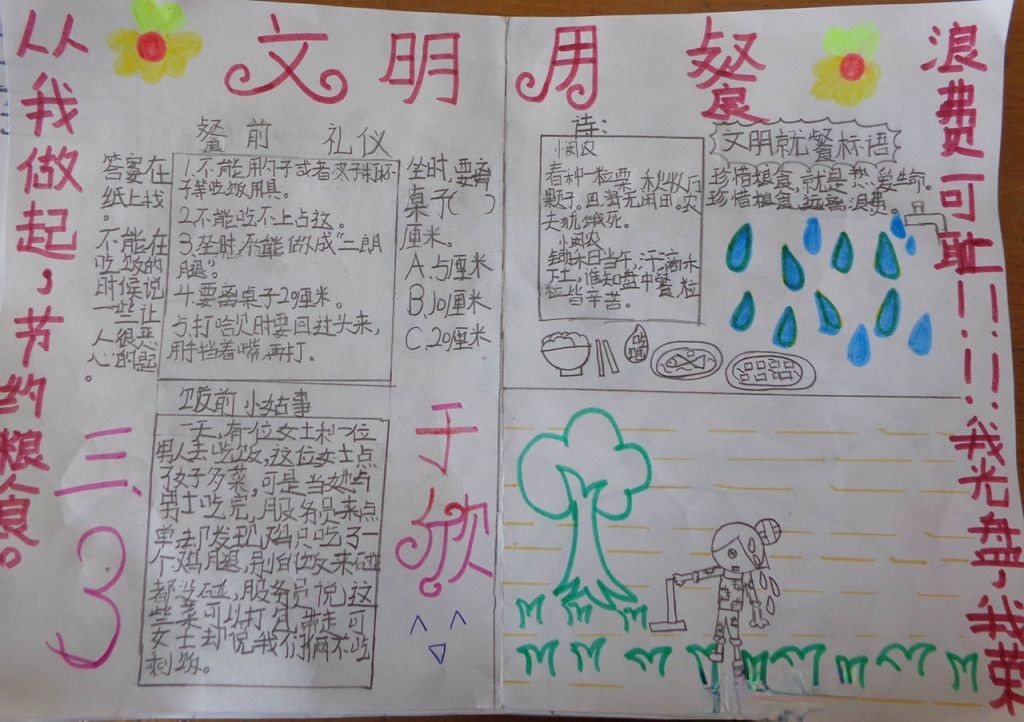 文明用餐
从我做起，节约粮食。
浪费可耻！！！！我光盘，我荣
餐前 礼仪
答案在
纸上找
。
不能在
吃饭的
时候说
一些让
人很恶
心的话
。
1.不能用勺子或者叉子敲杯
子等吃饭用具。
3.坐时，不能做成“二郎
腿”。
4.要离桌子20厘米。
5打哈欠时要回过头来，
用手挡着嘴，再打。
坐时，要离
桌子（ ）
厘米。
A.5厘米
B.10厘米
C.20厘米
饭前小故事
一天，有一位女士和一位
男人去吃饭，这位女士点
了好多菜，可是当她与
男士吃完，服务员来点
单却发现，妈只吃了一
个鸡腿，别的饭菜碰
都没碰，服务员说，这
些菜可以打包带走可
女士却说我们俩不吃
剩饭。
三、3
于欣
诗：
小闵农
春种一粒粟，秋收万
颗子。四海无闲田，农
夫犹饿死。
小闵农
锄禾日当午，汗滴禾
下土，谁知盘中餐，粒
粒皆辛苦。
文明就餐标语
珍惜粮食，就是热爱生命。
珍惜粮食，远离浪费。